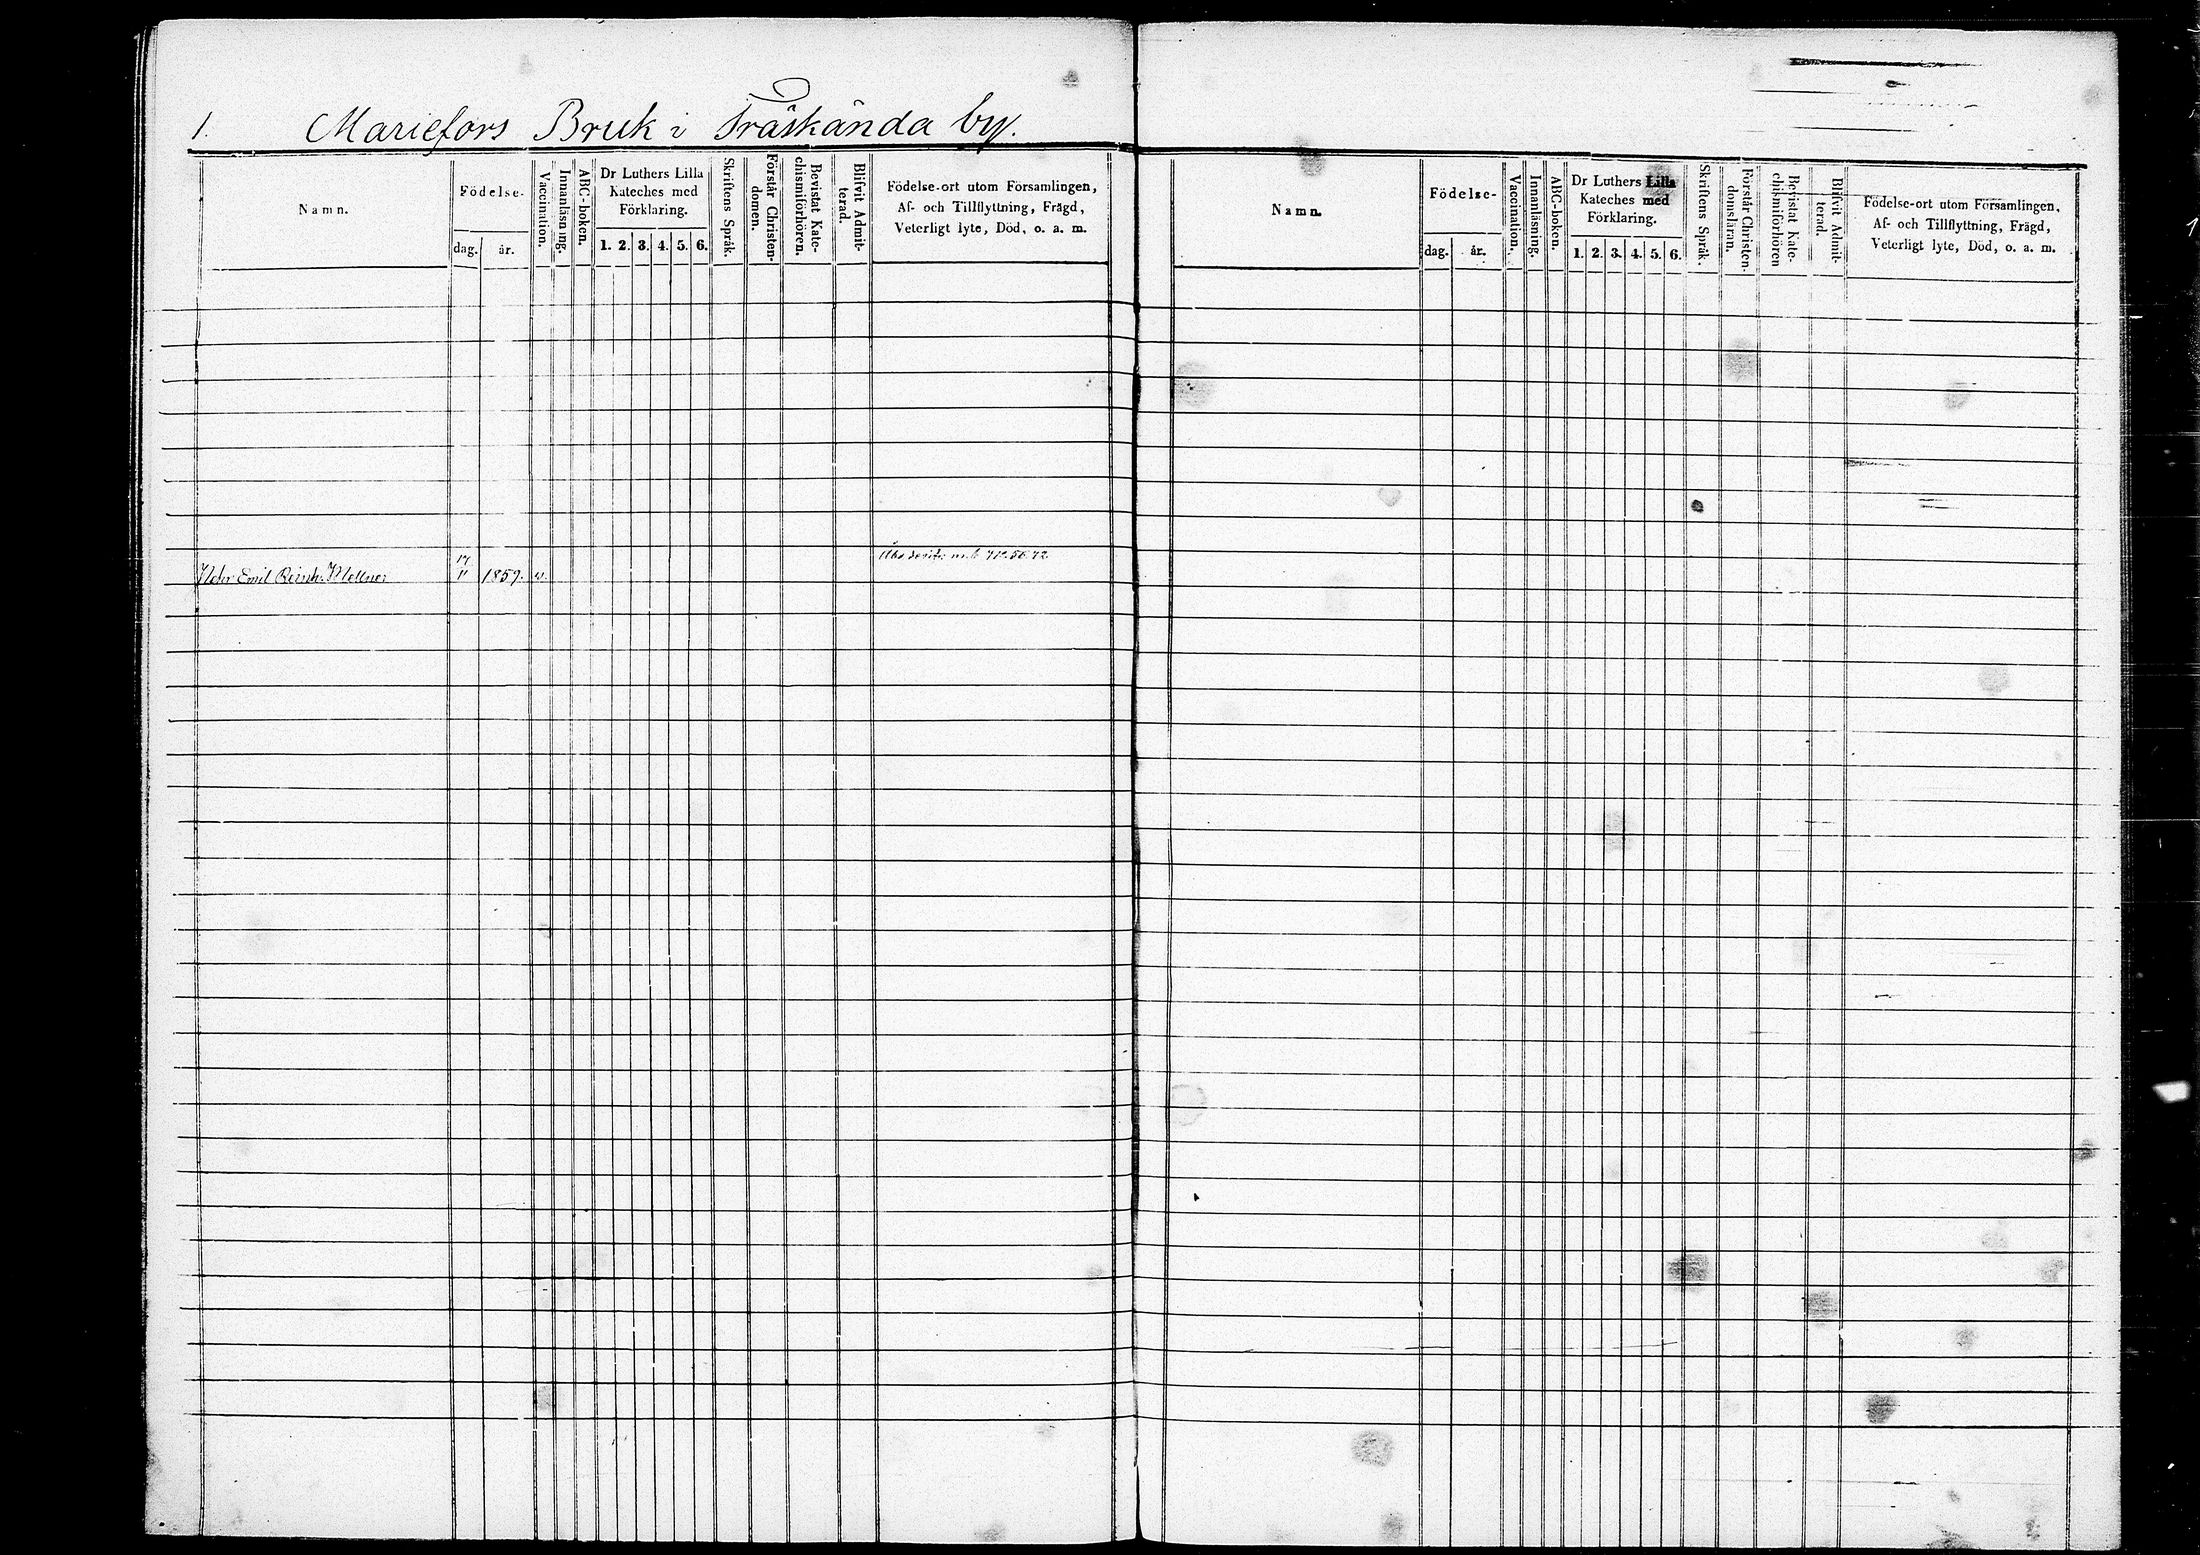 1. Mariefors Bruk i Träskända by.
Namn.
Födelse-
dag. år.
Vaccination.
Innanläsning.
ABC-boken.
Dr Luthers Lilla
Kateches med
Förklaring.
1. 2. 3. 4. 5. 6.
Skriftens Språk.
Förstår Christen-
domen.
Bevistat Kate-
chismiförhören.
Blifvit Admit-
terad.
Födelse-ort utom Församlingen,
Af- och Tillflyttning, Frägd,
Veterligt lyte, Död, o. a. m.
17
11 1859. v.
Emil Reinh. Mellner
Namn.
Födelse-
dag. år.
Vaccination.
Innanläsning.
ABC-boken.
Dr Luthers Lilla
Kateches med
Förklaring.
1. 2. 3. 4. 5. 6.
Skriftens Språk.
Förstår Christen-
domsläran.
Bevistat Kate-
chismiförhören
Blifvit Admit-
terad.
Födelse-ort utom Församlingen,
Af- och Tillflyttning, Frägd,
Veterligt lyte, Död, o. a. m.
1